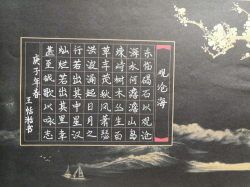 观沧海
东临碣石以观沧
海水何澹澹山岛
竦峙树木丛生百
草丰茂秋风萧瑟
洪波涌起日月之
行若出其中星汉
灿烂若出其里幸
甚至哉歌以咏志
庚子年春
王书